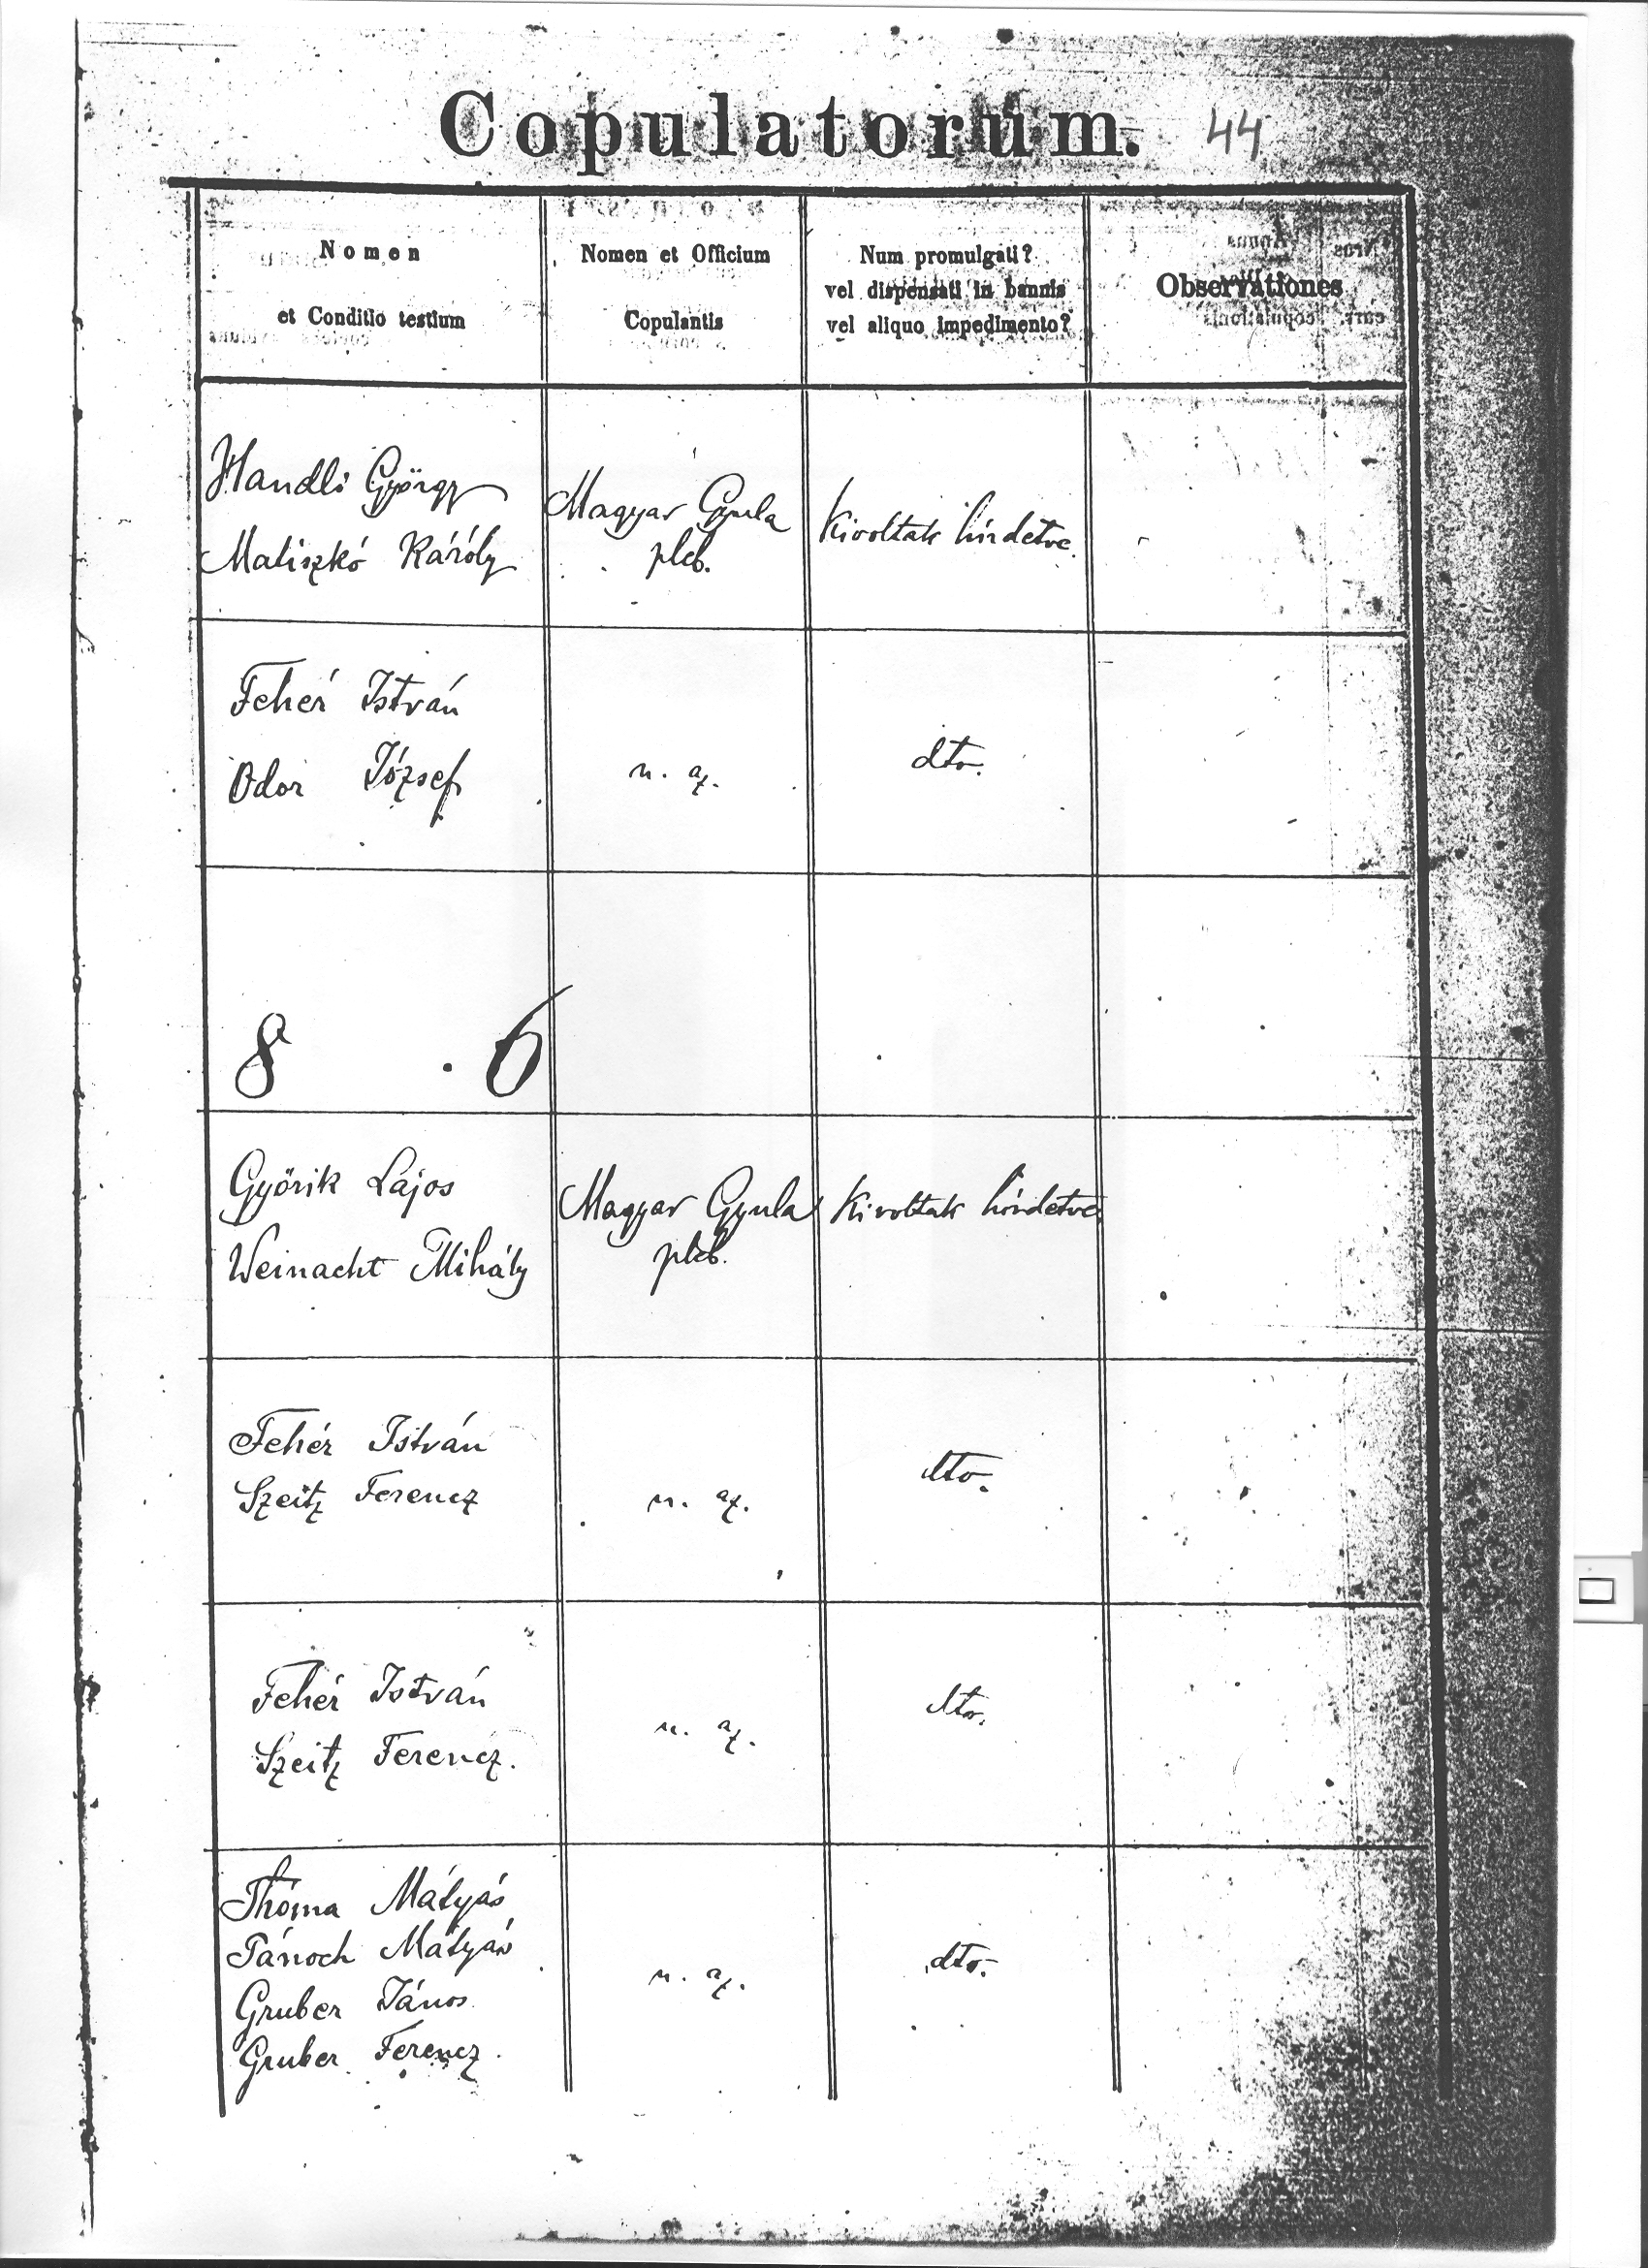 Copulatorum. 44
Nomen
et Conditio testium
Nomen et Officium
Copulantis
Num promulgati?
vel dispensati in bannis
vel aliquo impedimento?
Observationes
Handli György
Matiszkó Károly
Magyar Gyula
pleb.
Kivoltak hirdetve.
Fehér István
Odor József
u. az.
dto.
8 6
Győrik Lajos
Weinacht Mihály
Magyar Gyula
pleb.
Kivoltak hirdetve.
Fehér István
Szeitz Ferencz
u. az.
dto.
Fehér István
Szeitz Ferencz.
u. az.
dto.
Thóma Mátyás
Mátyás
Gruber János
Gruber Ferencz.
u. az.
dto.